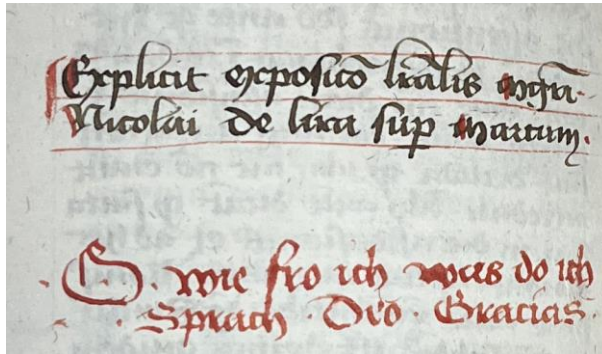 Explicit exposicō lr̄alis mgr̄i
Nicolai de lira suꝑ marcum.
O. wie fro ich was do ich
Sprach. Deo. Gracias.